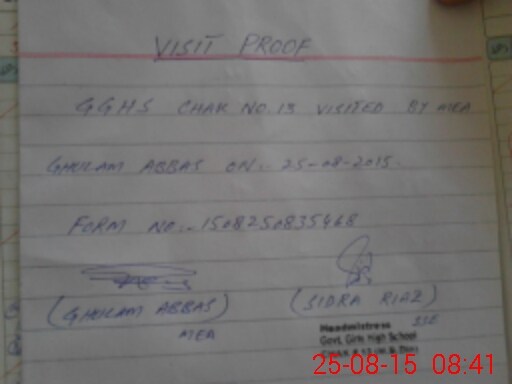 VISIT PROOF
GGHS CHAK NO. 13 VISITED BY MEA
GHULAM ABBAS ON:- 25-08-2015.
FORM NO:- 150825083546B
(GHULAM ABBAS) (SIDRA RIAZ)
MEA SSE
Headmistress
Govt. Girls High School
25-08-15 08:41